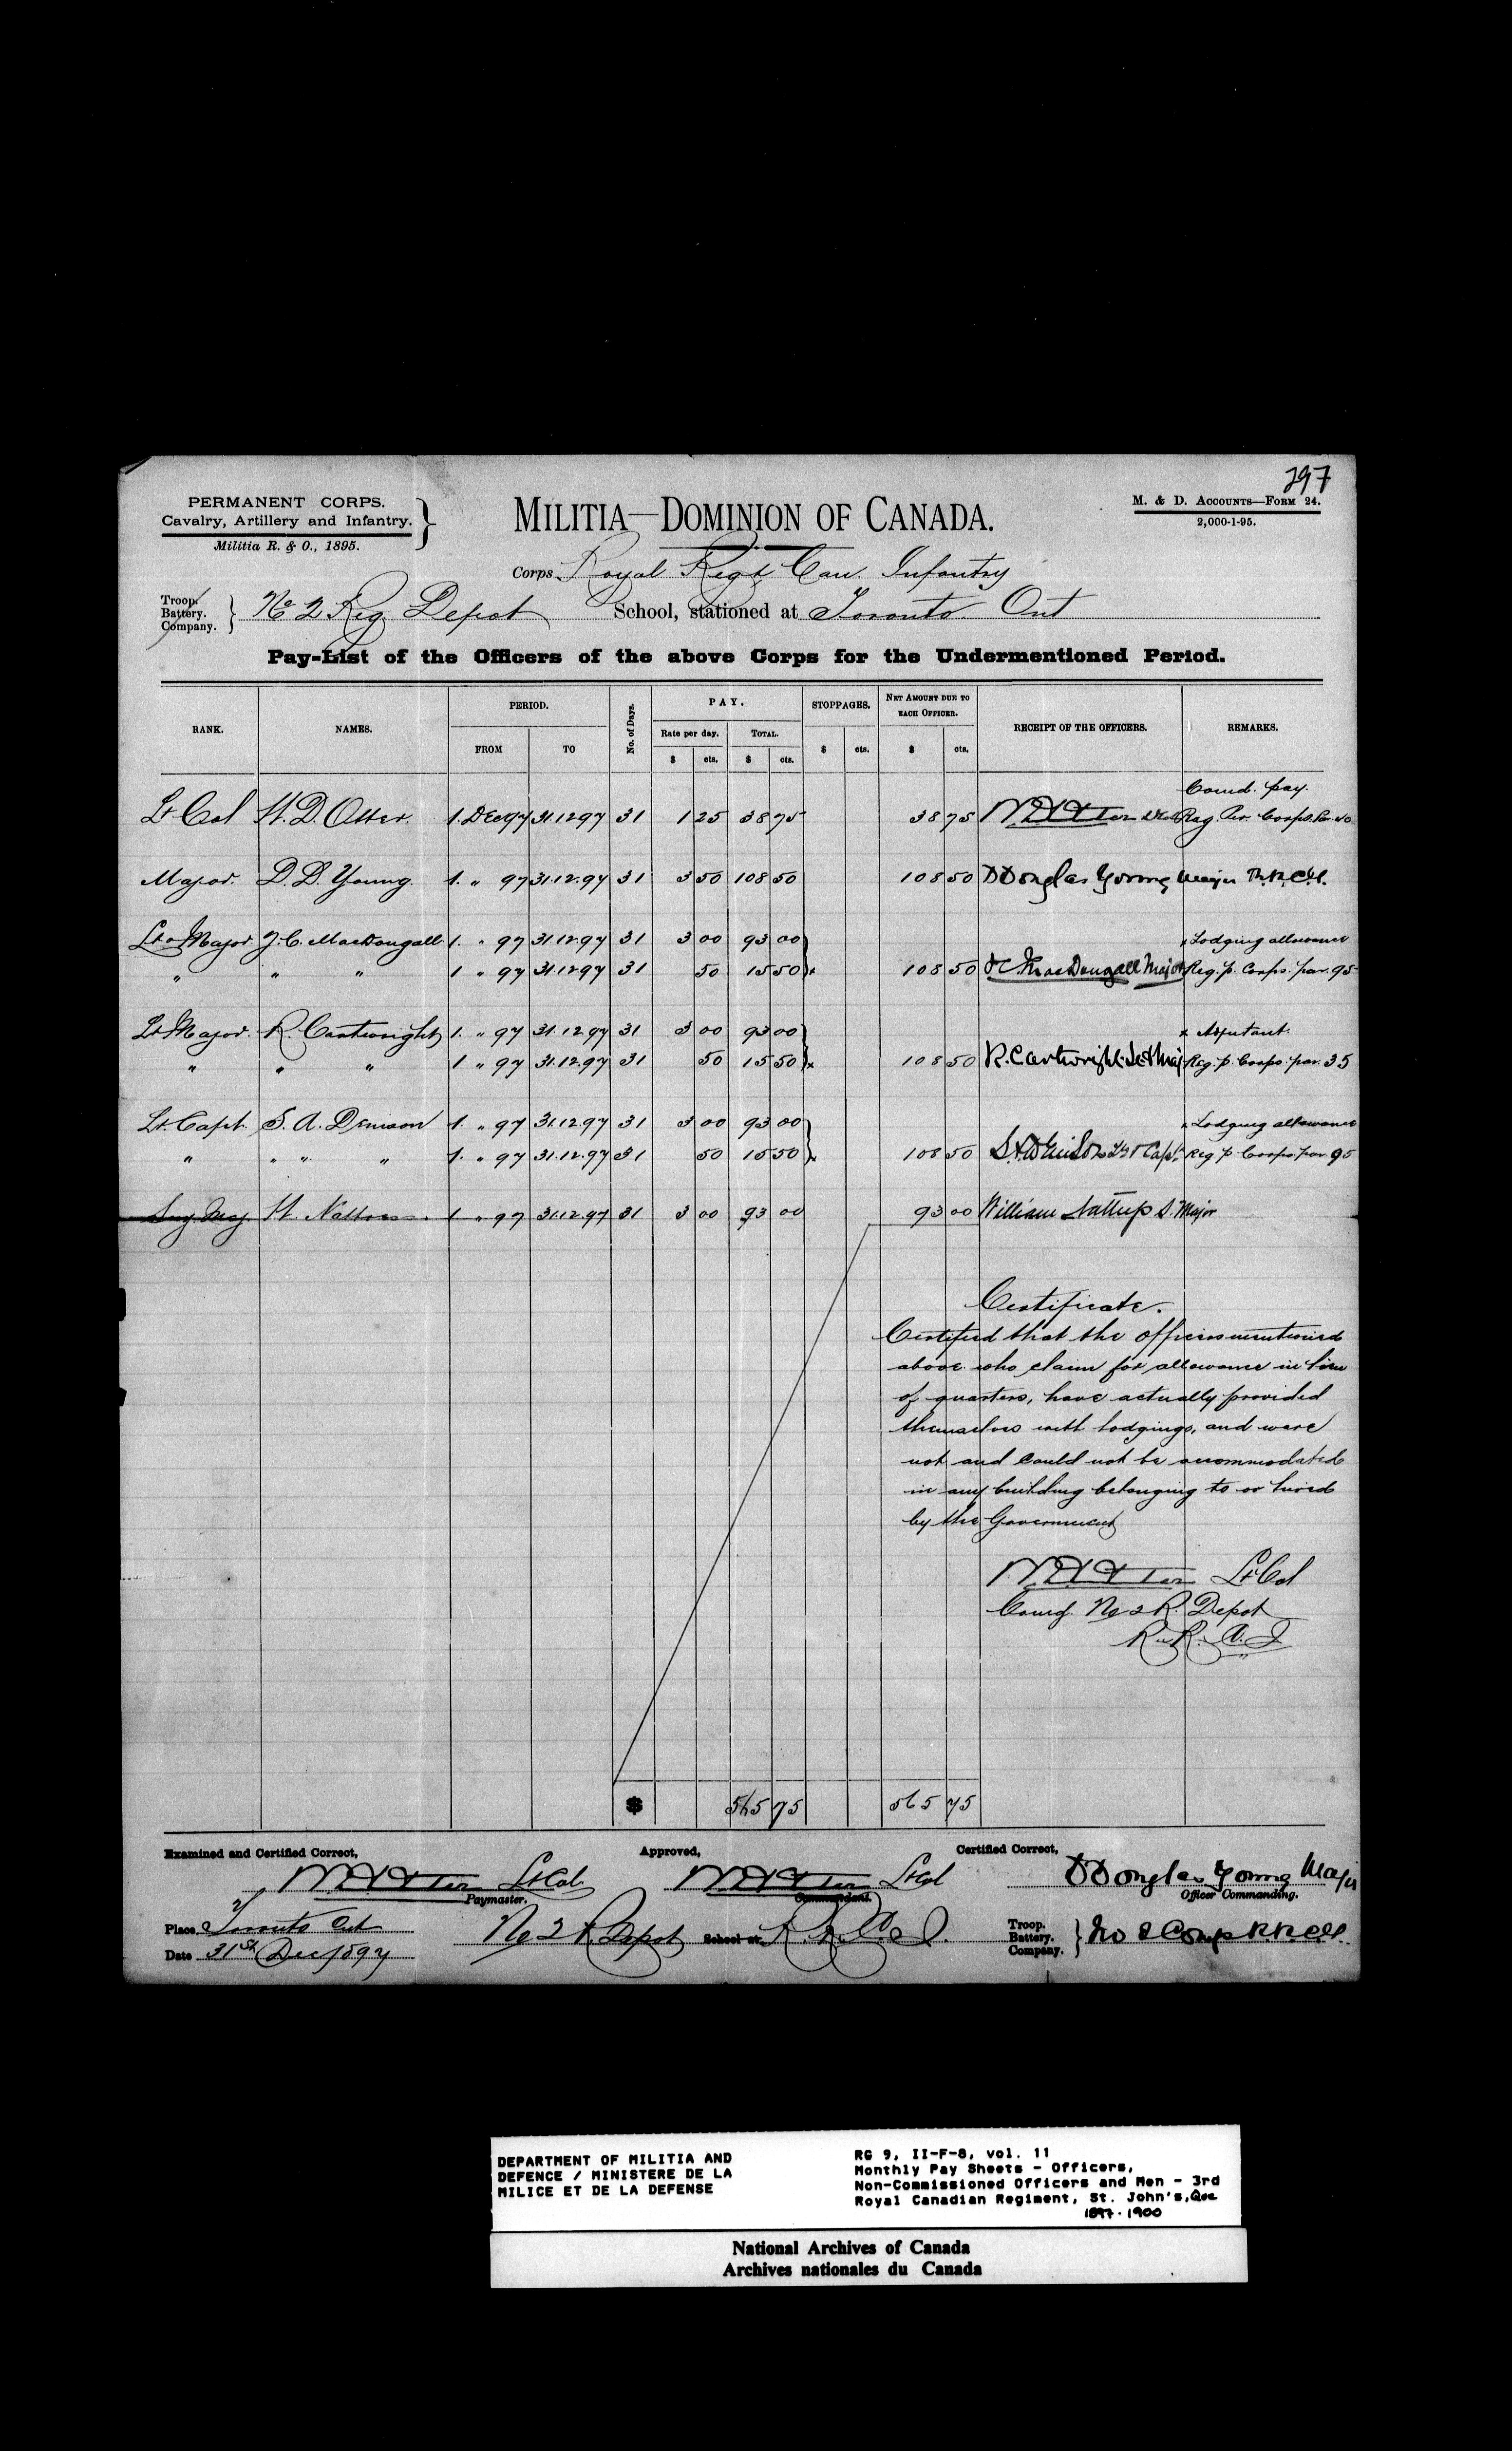 297
PERMANENT CORPS.
Cavalry, Artillery and Infantry.
Militia R. & O., 1895.
MILITIA—DOMINION OF CANADA.
M. & D. ACCOUNTS—FORM 24.
2,000-1-95.
Corps Royal Regt Can. Infantry
Troop.
Battery.
Company.
No 2 Reg. Depot School, stationed at Toronto. Ont
Pay-List of the Officers of the above Corps for the Undermentioned Period.
RANK. NAMES. PERIOD. No. of Days. PAY. STOPPAGES. NET AMOUNT DUE TO EACH OFFICER. RECEIPT OF THE OFFICERS. REMARKS.
FROM TO Rate per day. TOTAL.
$ cts. $ cts. $ cts. $ cts.
Comd. pay.
Lt Col W. D. Otter. 1. Dec 97 31.12.97 31 1 25 38 75 38 75 WD Otter Reg. Per. Corps. Par. 40
Major. D. D. Young. 1. " 97 31.12.97 31 3 50 108 50 108 50 D Douglas Young Major R.R.C.I.
Lt & Major. J. C. MacDougall 1. " 97 31.12.97 31 3 00 93 00 x Lodging allowance
" " " 1 " 97 31.12.97 31 50 15 50 x 108 50 JC MacDougall Major Reg. p. Corps. par. 95
Lt & Major. R. Cartwright 1. " 97 31.12.97 31 3 00 93 00 x Adjutant.
" " " 1 " 97 31.12.97 31 50 15 50 x 108 50 R. Cartwright Lt & Maj Reg. p. Corps. par. 35
Lt. Capt. S. A. Denison 1. " 97 31.12.97 31 3 00 93 00 x Lodging allowance
" " " " 1. " 97 31.12.97 31 50 15 50 x 108 50 S A Denison Lt & Capt. Reg p. Corps. par 95
W. 1 " 97 31.12.97 31 3 00 93 00 93 00 William S. Major
Certificate.
Certified that the officers mentioned
above who claim for allowance in lieu
of quarters, have actually provided
themselves with lodgings, and were
not and could not be accommodated
in any building belonging to or hired
by the Government
WD Otter Lt Col
Comdg. No 2 R. Depot
R. R. C. I.
$ 565 75 565 75
Examined and Certified Correct, Approved, Certified Correct,
WD Otter Lt Col. WD Otter Lt Col D Douglas Young Major
Paymaster. Commandant. Officer Commanding.
Place Toronto Ont No 2 R. Depot School at R. R. C. I. Troop.
Battery.
Company.
No 2 Coy R.R.C.I.
Date 31st Dec 1897
DEPARTMENT OF MILITIA AND
DEFENCE / MINISTERE DE LA
MILICE ET DE LA DEFENSE
RG 9, II-F-8, vol. 11
Monthly Pay Sheets - Officers,
Non-Commissioned Officers and Men - 3rd
Royal Canadian Regiment, St. John's, Que
1897-1900
National Archives of Canada
Archives nationales du Canada